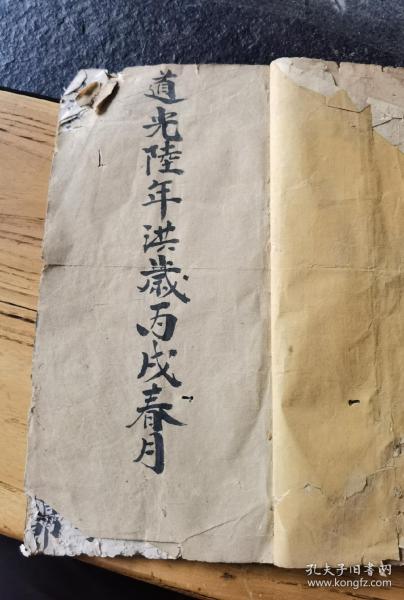 道光陸年洪歲丙戌春月
孔夫子旧书网
www.kongfz.com